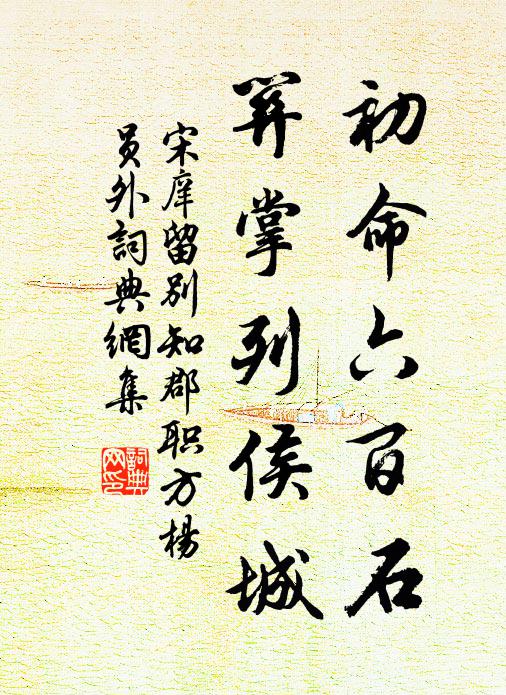 初命六百石
羿掌列侯城
宋庠留别知郡职方楊
員外詞典網集
詞典
网印